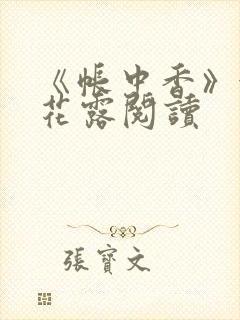 《帳中香》
花露閱讀
張寶文